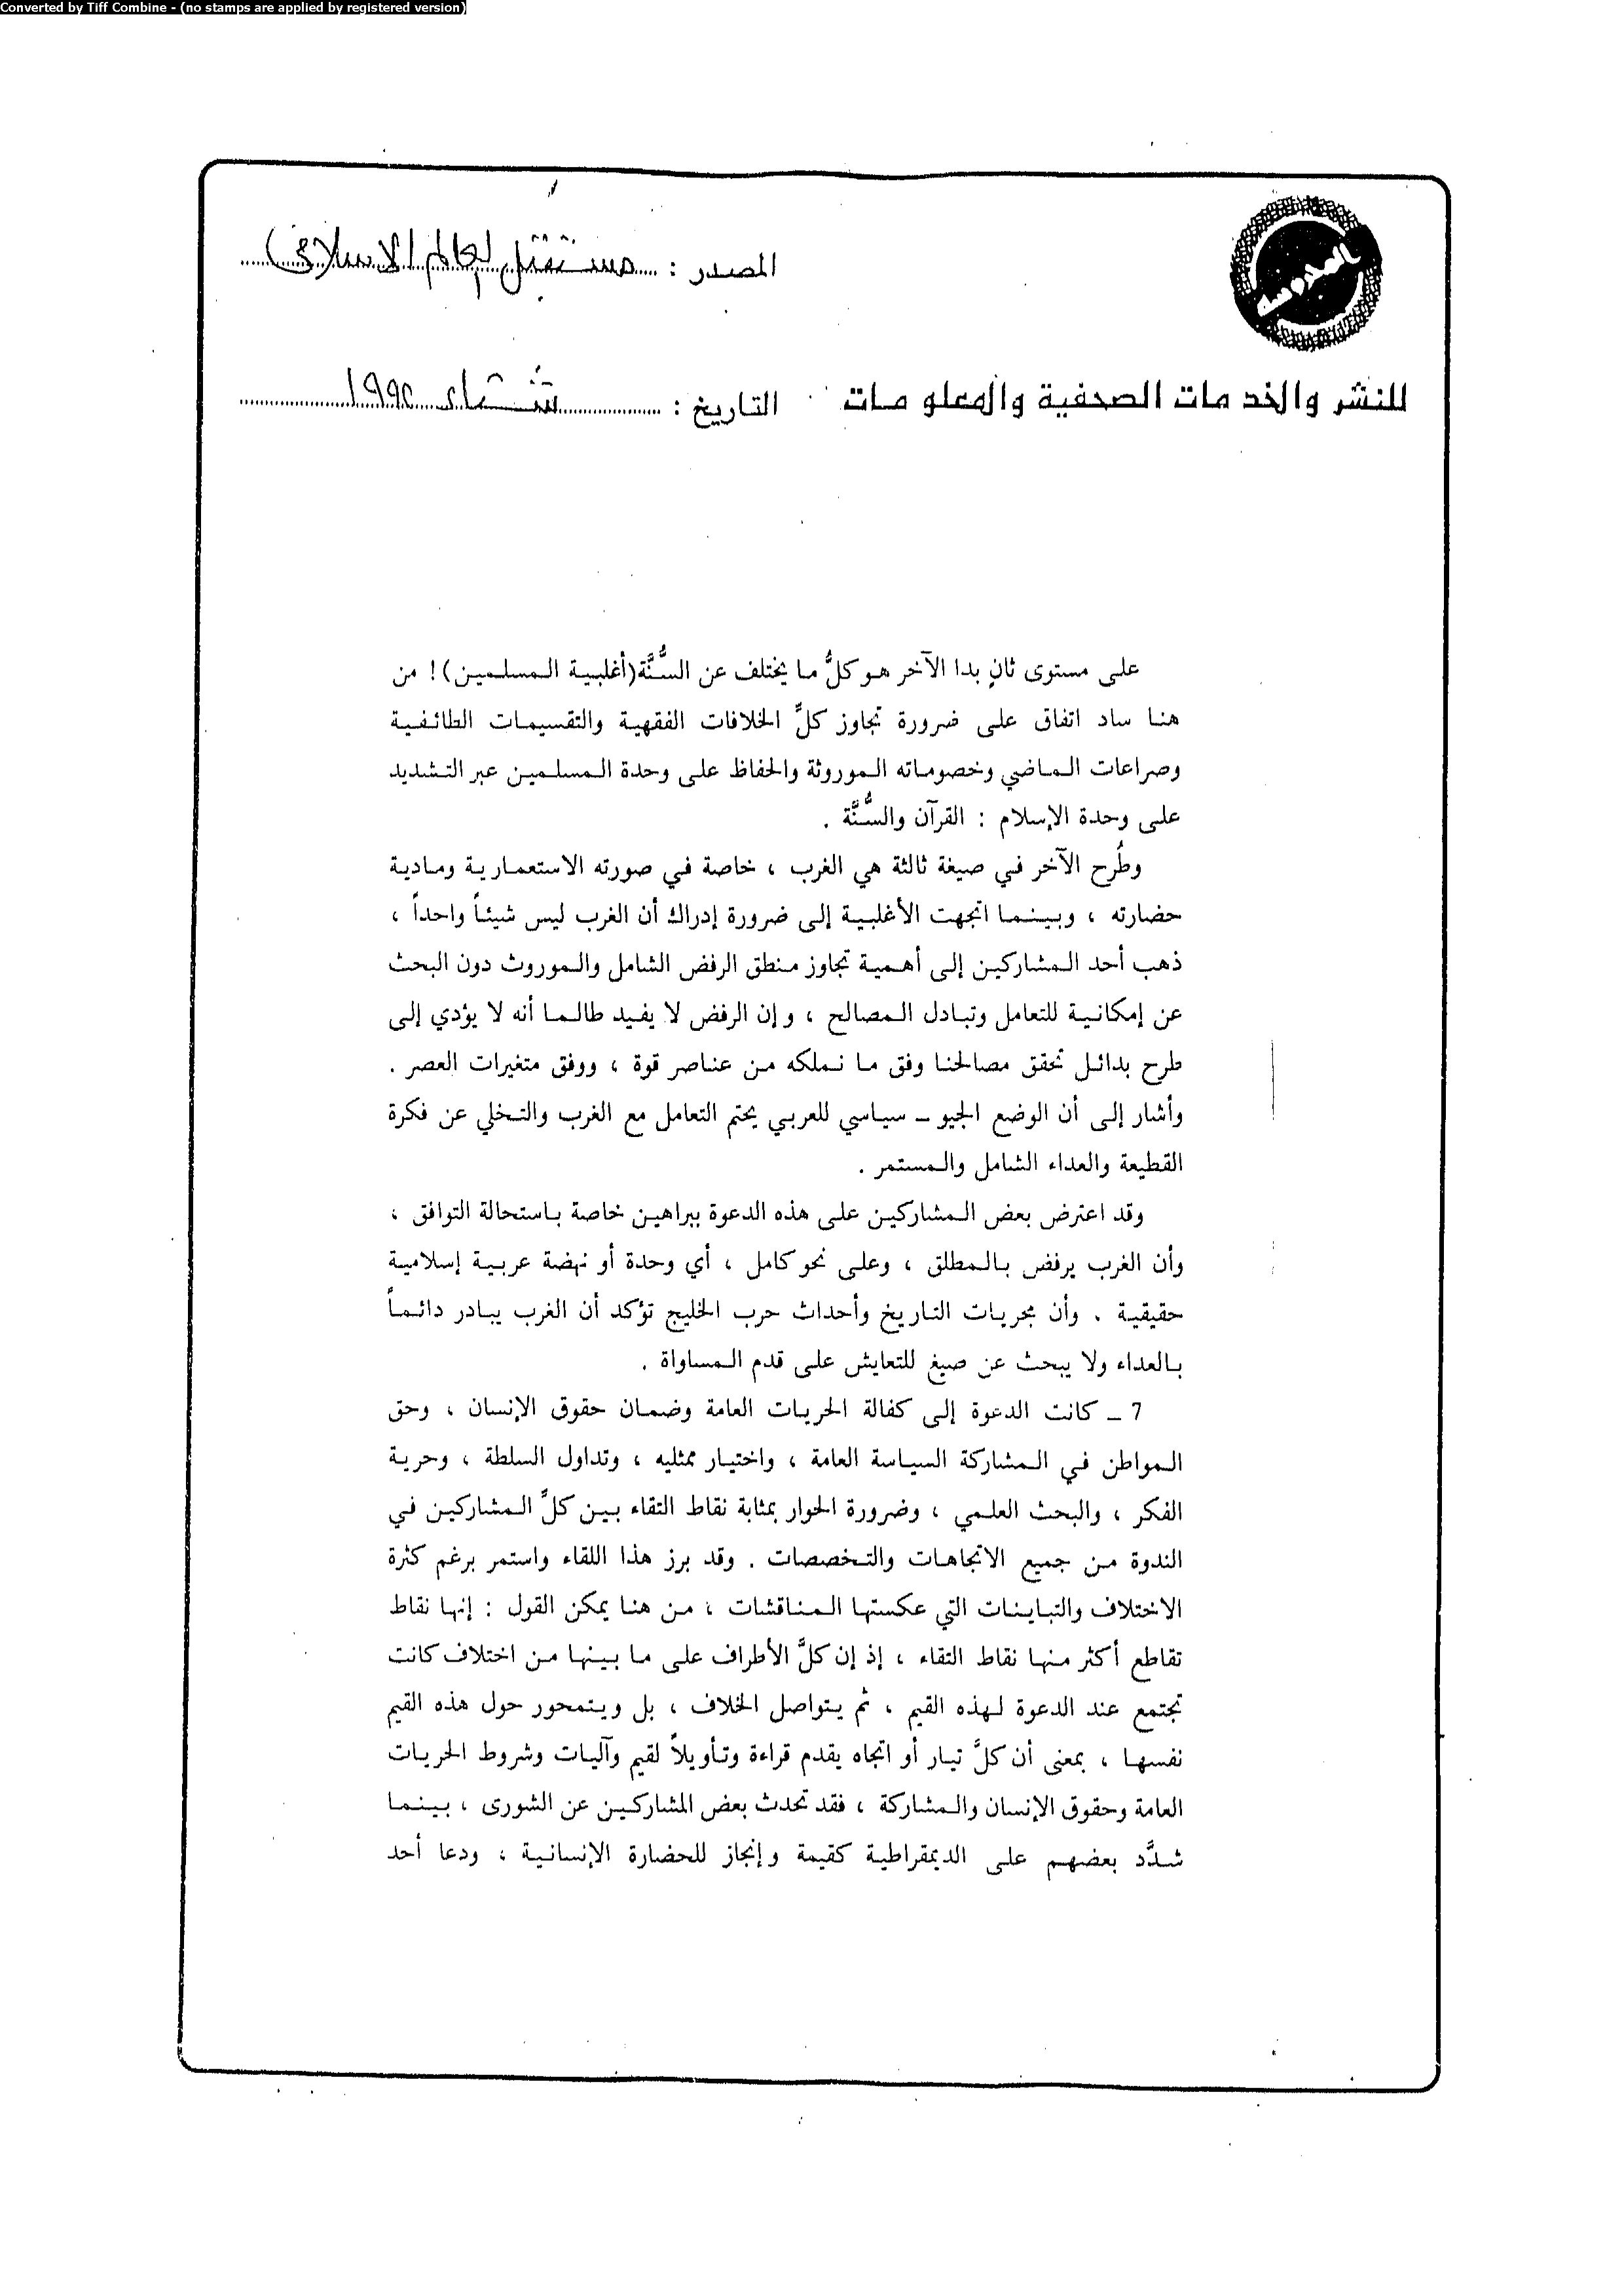 Converted by Tiff Combine - (no stamps are applied by registered version)
المصدر : مستقبل العالم الاسلامي
المحروسة
للنشر والخدمات الصحفية والمعلومات
التاريخ : شتاء ١٩٩٢
على مستوى ثانٍ بدا الآخر هو كلُّ ما يختلف عن السُّنَّة(أغلبية المسلمين)! من
هنا ساد اتفاق على ضرورة تجاوز كلِّ الخلافات الفقهية والتقسيمات الطائفية
وصراعات الماضي وخصوماته الموروثة والحفاظ على وحدة المسلمين عبر التشديد
على وحدة الإسلام : القرآن والسُّنَّة .
وطُرح الآخر في صيغة ثالثة هي الغرب ، خاصة في صورته الاستعمارية ومادية
حضارته ، وبينما اتجهت الأغلبية إلى ضرورة إدراك أن الغرب ليس شيئاً واحداً ،
ذهب أحد المشاركين إلى أهمية تجاوز منطق الرفض الشامل والموروث دون البحث
عن إمكانية للتعامل وتبادل المصالح ، وإن الرفض لا يفيد طالما أنه لا يؤدي إلى
طرح بدائل تحقق مصالحنا وفق ما نملكه من عناصر قوة ، ووفق متغيرات العصر .
وأشار إلى أن الوضع الجيو ـ سياسي للعربي يحتم التعامل مع الغرب والتخلي عن فكرة
القطيعة والعداء الشامل والمستمر .
وقد اعترض بعض المشاركين على هذه الدعوة ببراهين خاصة باستحالة التوافق ،
وأن الغرب يرفض بالمطلق ، وعلى نحو كامل ، أي وحدة أو نهضة عربية إسلامية
حقيقية . وأن مجريات التاريخ وأحداث حرب الخليج تؤكد أن الغرب يبادر دائماً
بالعداء ولا يبحث عن صيغ للتعايش على قدم المساواة .
7 ـ كانت الدعوة إلى كفالة الحريات العامة وضمان حقوق الإنسان ، وحق
المواطن في المشاركة السياسة العامة ، واختيار ممثليه ، وتداول السلطة ، وحرية
الفكر ، والبحث العلمي ، وضرورة الحوار بمثابة نقاط التقاء بين كلِّ المشاركين في
الندوة من جميع الاتجاهات والتخصصات . وقد برز هذا اللقاء واستمر برغم كثرة
الاختلاف والتباينات التي عكستها المناقشات ، من هنا يمكن القول : إنها نقاط
تقاطع أكثر منها نقاط التقاء ، إذ إن كلَّ الأطراف على ما بينها من اختلاف كانت
تجتمع عند الدعوة لهذه القيم ، ثم يتواصل الخلاف ، بل ويتمحور حول هذه القيم
نفسها ، بمعنى أن كلَّ تيار أو اتجاه يقدم قراءة وتأويلاً لقيم وآليات وشروط الحريات
العامة وحقوق الإنسان والمشاركة ، فقد تحدث بعض المشاركين عن الشورى ، بينما
شدَّد بعضهم على الديمقراطية كقيمة وإنجاز للحضارة الإنسانية ، ودعا أحد